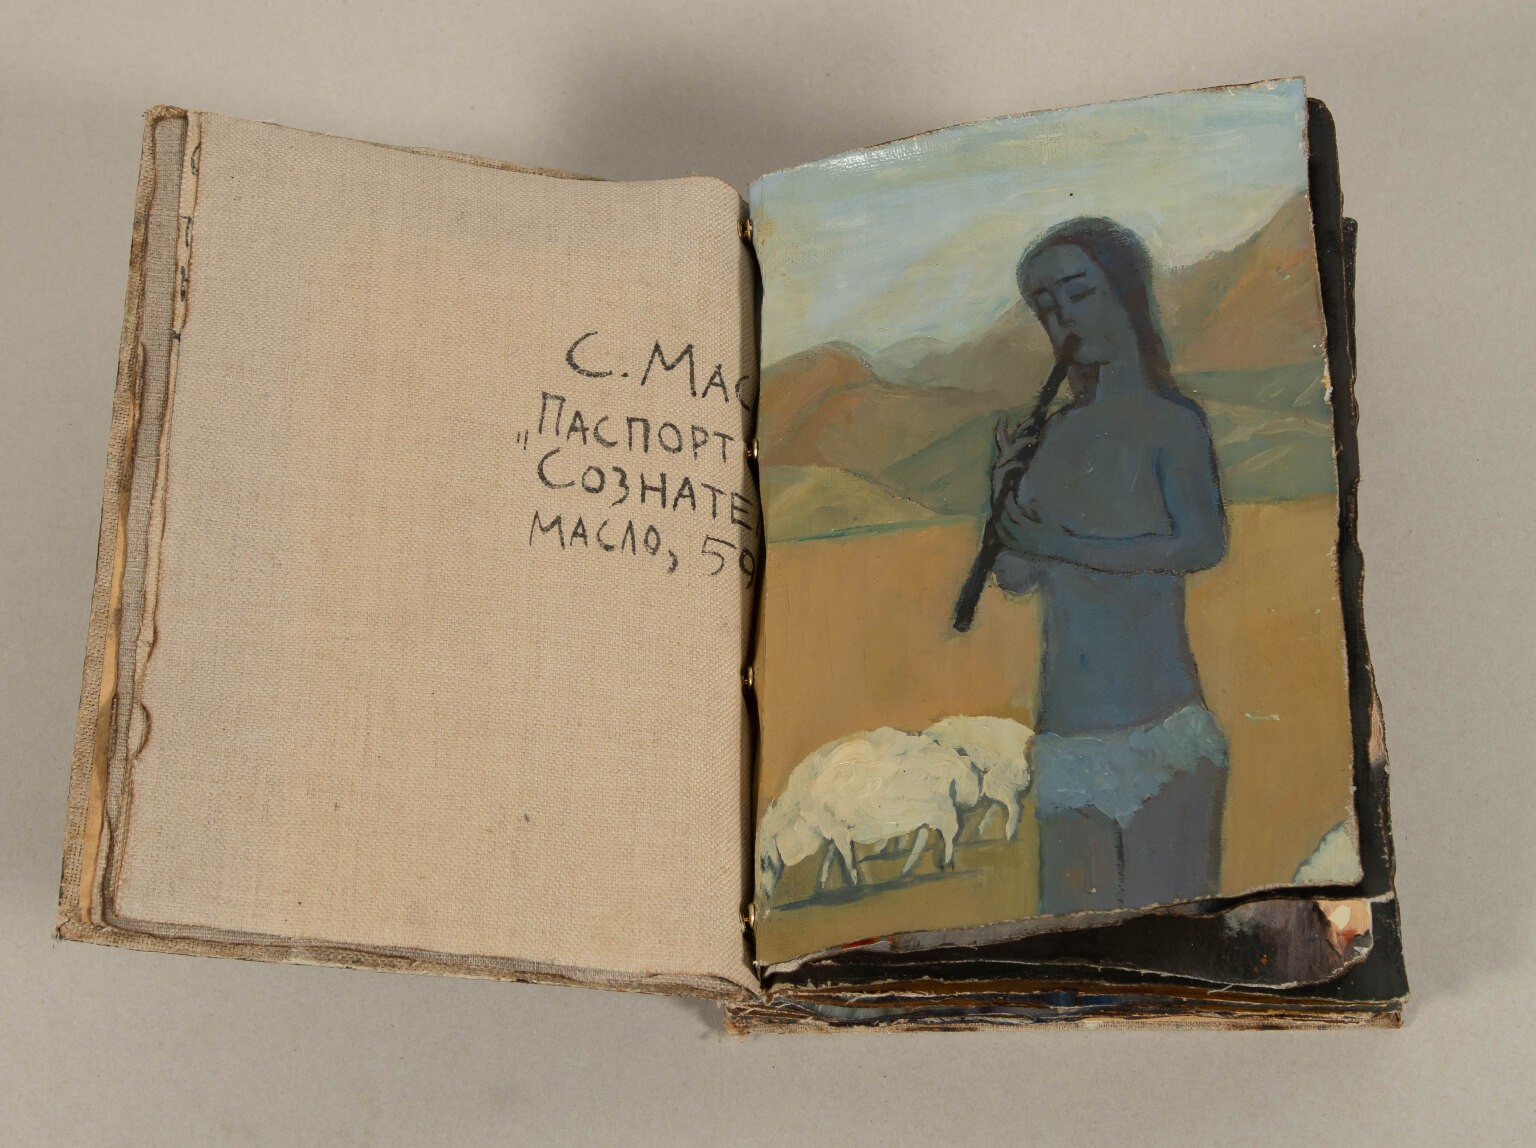 С. МАС
ПАСПОРТ
„СОЗНАТЕ
МАСЛО, 59